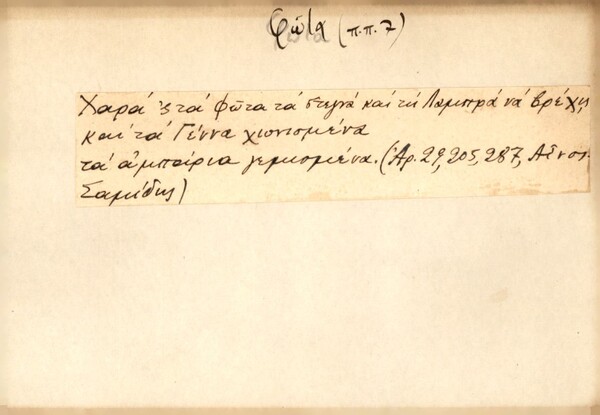 Φῶτα (π.π. 7)
Χαρά 'ς τά Φῶτα τά στεγνά καί τή Λαμπρά νά βρέχῃ,
καί τά Γέννα χιονισμένα
τά ἀμπάρια γεμισμένα. (Ἀρ. 29, 205, 287, Αἶνος.
Σαμίδης)